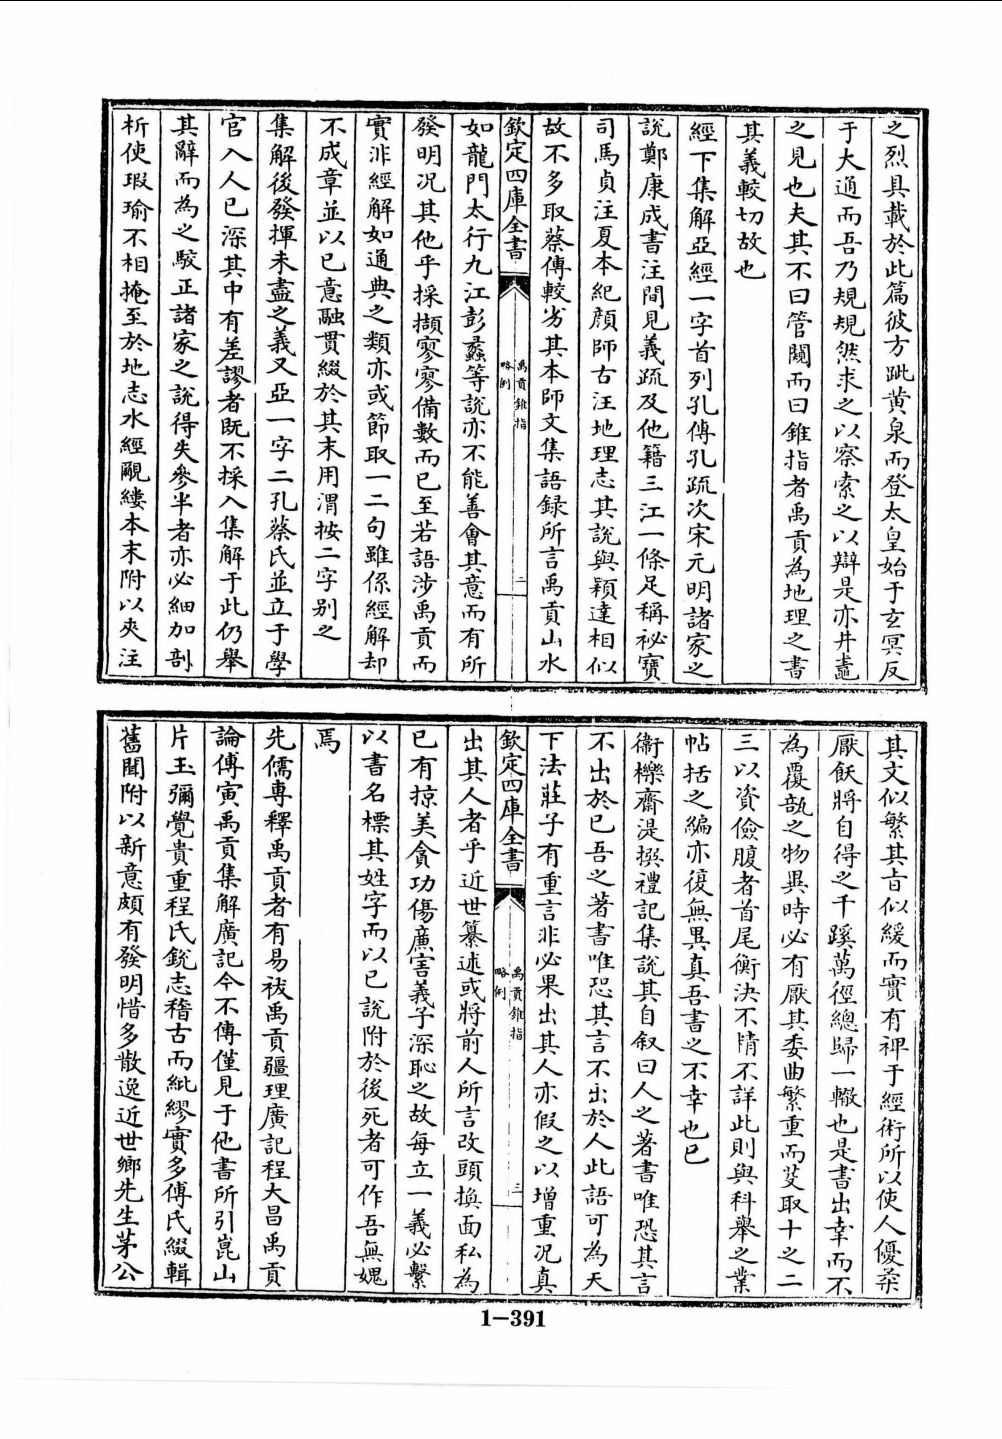 之烈具載於此篇彼方跐黄泉而登太皇始于玄冥反
于大通而吾乃規規然求之以察索之以辯是亦井鼃
之見也夫其不曰管闚而曰錐指者禹貢為地理之書
其義較切故也
經下集解亞經一字首列孔傳孔疏次宋元明諸家之
說鄭康成書注間見義疏及他籍三江一條足稱祕寶
司馬貞注夏本紀顔師古注地理志其說與穎達相似
故不多取蔡傳較劣其本師文集語録所言禹貢山水
欽定四庫全書
禹貢錐指
略例
二
如龍門太行九江彭蠡等說亦不能善會其意而有所
發明况其他乎採擷寥寥備數而已至若語涉禹貢而
實非經解如通典之類亦或節取一二句雖係經解却
不成章並以已意融貫綴於其末用渭按二字别之
集解後發揮未盡之義又亞一字二孔蔡氏並立于學
官入人已深其中有差謬者既不採入集解于此仍舉
其辭而為之駮正諸家之說得失參半者亦必細加剖
析使瑕瑜不相掩至於地志水經覼縷本末附以夾注
其文似繁其㫖似緩而實有裨于經術所以使人優柔
厭飫將自得之千蹊萬徑總歸一轍也是書出幸而不
為覆瓿之物異時必有厭其委曲繁重而芟取十之二
三以資儉腹者首尾衡決不精不詳此則與科舉之業
帖括之編亦復無異真吾書之不幸也已
衞櫟齋湜撰禮記集說其自叙曰人之著書唯恐其言
不出於已吾之著書唯恐其言不出於人此語可為天
下法莊子有重言非必果出其人亦假之以增重况真
欽定四庫全書
禹貢錐指
略例
三
出其人者乎近世纂述或將前人所言改頭換面私為
已有掠美貪功傷廉害義予深恥之故每立一義必繫
以書名標其姓字而以已說附於後死者可作吾無媿
焉
先儒專釋禹貢者有易祓禹貢疆理廣記程大昌禹貢
論傅寅禹貢集解廣記今不傳僅見于他書所引崑山
片玉彌覺貴重程氏銳志稽古而紕繆實多傅氏綴輯
舊聞附以新意頗有發明惜多散逸近世鄉先生茅公
1-391